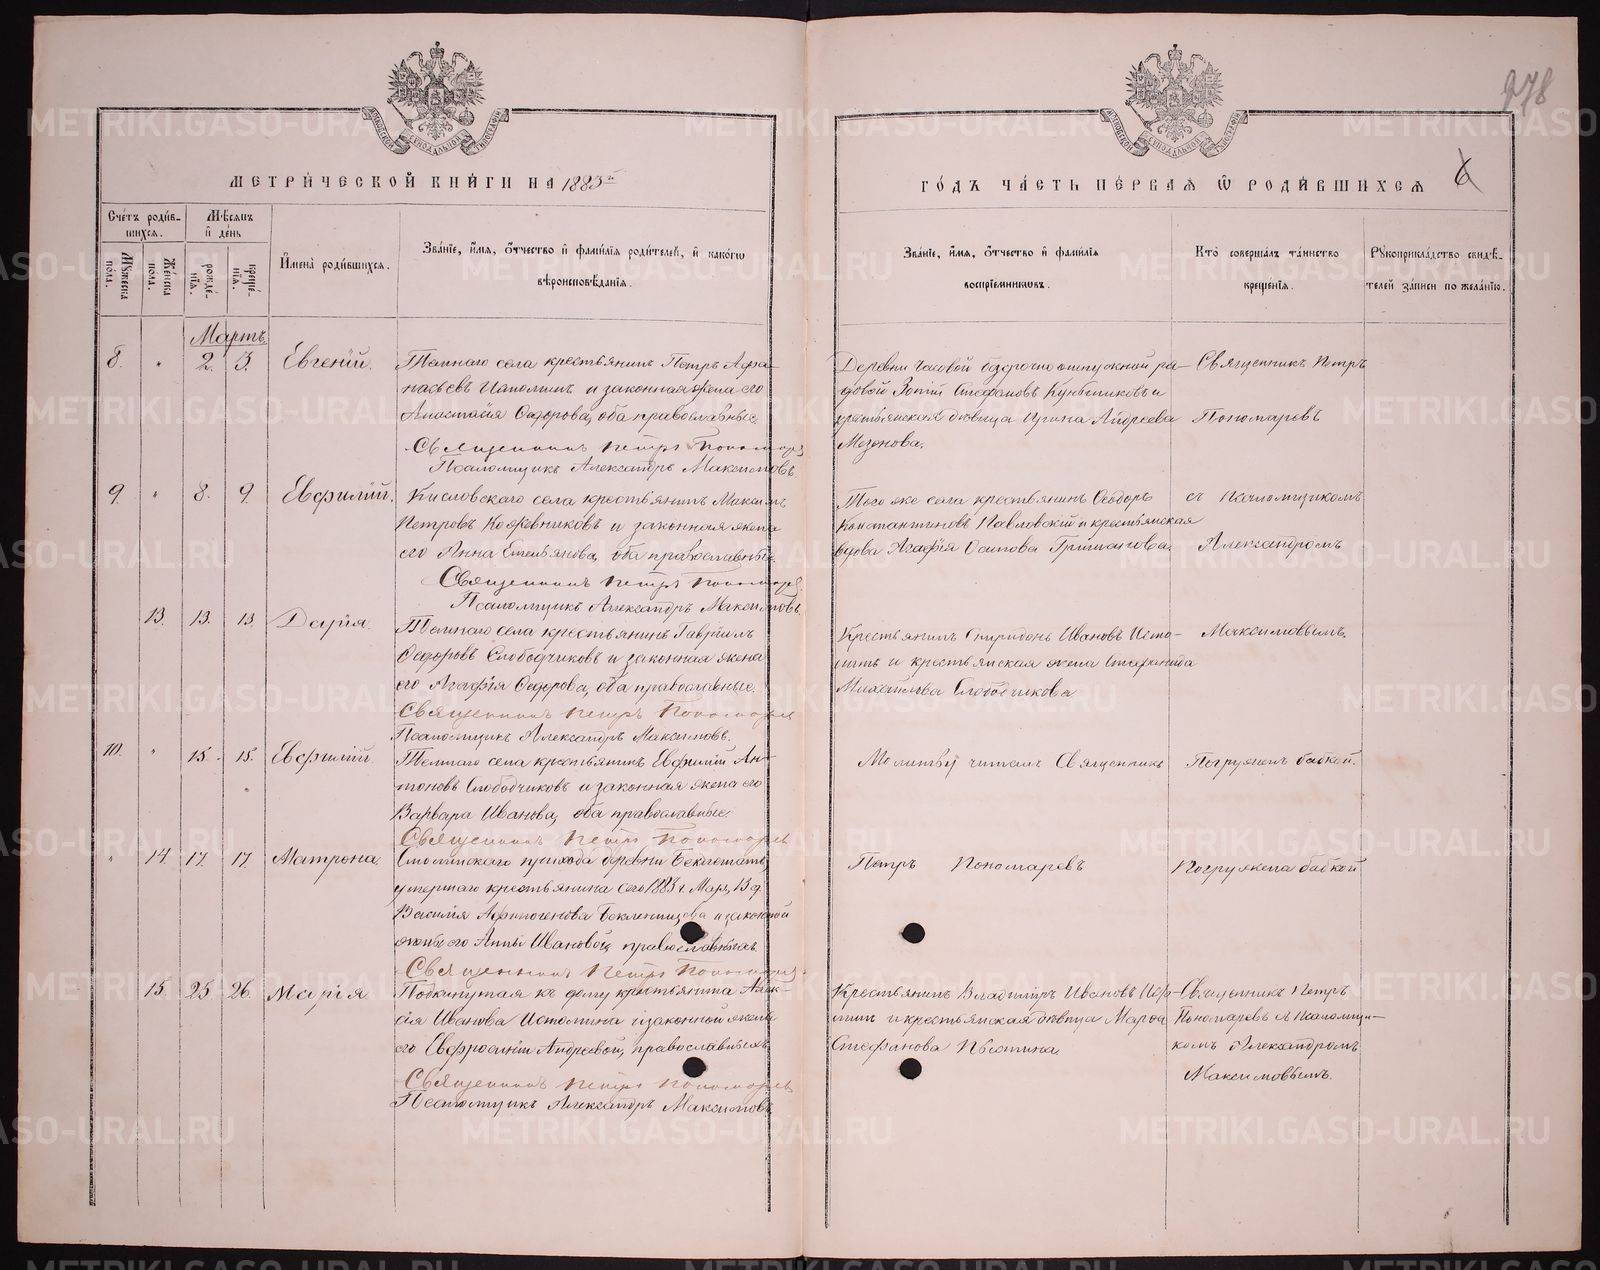 978
6
МЕТРИ́ЧЕСКОЙ КНИ́ГИ НА 1883й
ГО́ДЪ ЧА́СТЬ ПЕ́РВАѦ Ѡ РОДИ́ВШИХСѦ
Сче́тъ роди́в-
шихсѧ.
Мꙋжеска пола.
Же́нска пола.
Мѣ́сѧцъ
и҆ де́нь
рожде́-нїѧ.
креще́-нїѧ.
И҆мена̀ роди́вшихсѧ.
Зва́нїе, и҆́мѧ, ѻ҆́тчество и҆ фами́лїѧ роди́телей, и҆ како́гѡ
вѣроисповѣ́данїѧ.
Зва́нїе, и҆́мѧ, ѻ҆́тчество и҆ фами́лїѧ
воспрїе́мникѡвъ.
Кто̀ соверша́лъ та́инство
креще́нїѧ.
Рꙋкоприкла́дство свидѣ́-
телей за́писи по жела́нїю.
Мартъ
8. " 2. 3. Евгеній.
Темнаго села крестьянинъ Петръ Афа-
насьевъ и законная жена его
Анастасія Ѳедорова, оба православные.
Священникъ Петръ Пономаревъ
Псаломщикъ Александръ Максимовъ
Деревни безсрочно отпускной ря-
довой Стефановъ и
крестьянская дѣвица Ирина Андреева
Мезенова.
Священникъ Петръ
Пономаревъ
9. " 8. 9. Евфимій.
Кисловскаго села крестьянинъ Максимъ
Петровъ Кожевниковъ и законная жена
его Анна Емельянова, оба православные.
Священникъ Петръ Пономаревъ
Псаломщикъ Александръ Максимовъ.
Того же села крестьянинъ Ѳеодоръ
Константиновъ Павловскій и крестьянская
вдова Агафія Осипова
съ псаломщикомъ
Александромъ
13. 13. 13 Дарія.
Темнаго села крестьянинъ Гавріилъ
Ѳедоровъ Слободчиковъ и законная жена
его Агафія Ѳедорова, оба православные.
Священникъ Петръ Пономаревъ
Псаломщикъ Александръ Максимовъ.
Крестьянинъ Спиридонъ Ивановъ Исто-
минъ и крестьянская жена Стефанида
Михайлова Слободчикова
Максимовымъ.
10. " 15. 15. Евфимій.
Темнаго села крестьянинъ Евфимій Ан-
тоновъ Слободчиковъ и законная жена его
Варвара Иванова, оба православные.
Священникъ Петръ Пономаревъ
Молитву читалъ Священникъ
Погруженъ бабкой.
" 14. 17. 17. Матрона.
Смолинскаго прихода деревни
умершаго крестьянина сего 1883 г. Мар. 13 д.
Василія Афиногенова Бекленищева и законной
жены его Анны Ивановой, православныхъ
Священникъ Петръ Пономаревъ
Петръ Пономаревъ
Погружена бабкой
15. 25 26. Марія
Подкинутая къ дому крестьянина Алек-
сія Иванова Истомина и законной жены
его Евфросиніи Андреевой, православныхъ
Священникъ Петръ Пономаревъ
Псаломщикъ Александръ Максимовъ
Крестьянинъ Владиміръ Ивановъ
и крестьянская дѣвица Марѳа
Стефанова
Священникъ Петръ
Пономаревъ съ псаломщи-
комъ Александромъ
Максимовымъ.
METRIKI.GASO-URAL.RU